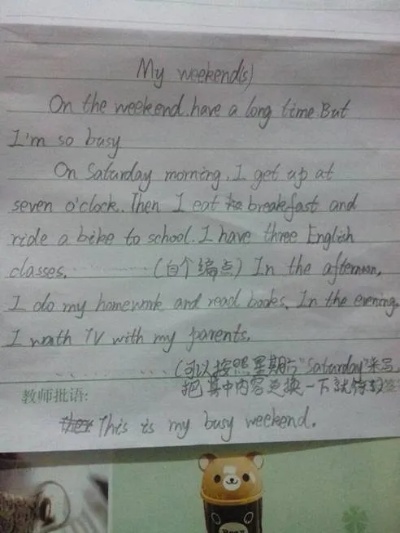 My weekend(s)
On the weekend. have a long time. But
I'm so busy
On Saturday morning. I get up at
seven o'clock. Then I eat breakfast and
ride a bike to school. I have three English
classes. ............ (自个编点) In the afternoon,
I do my homework and read books. In the evening.
I wath TV with my parents.
(可以按照星期六"Saturday"来写,
把其中内容更换一下就
教师批语:
This is my busy weekend.